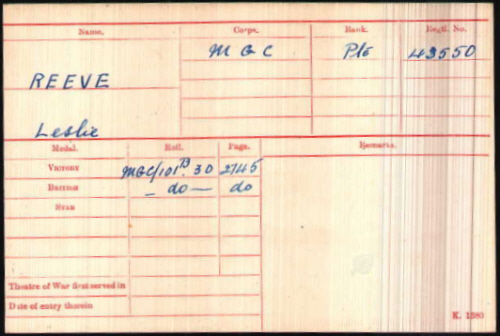 Name. Corps. Rank. Regtl. No.
M G C Pte 43550
REEVE
Leslie
Medal. Roll. Page. Remarks.
Victory MGC/101 B. 30 2745
British - do - do
Star
Theatre of War first served in
Date of entry therein
K. 1380